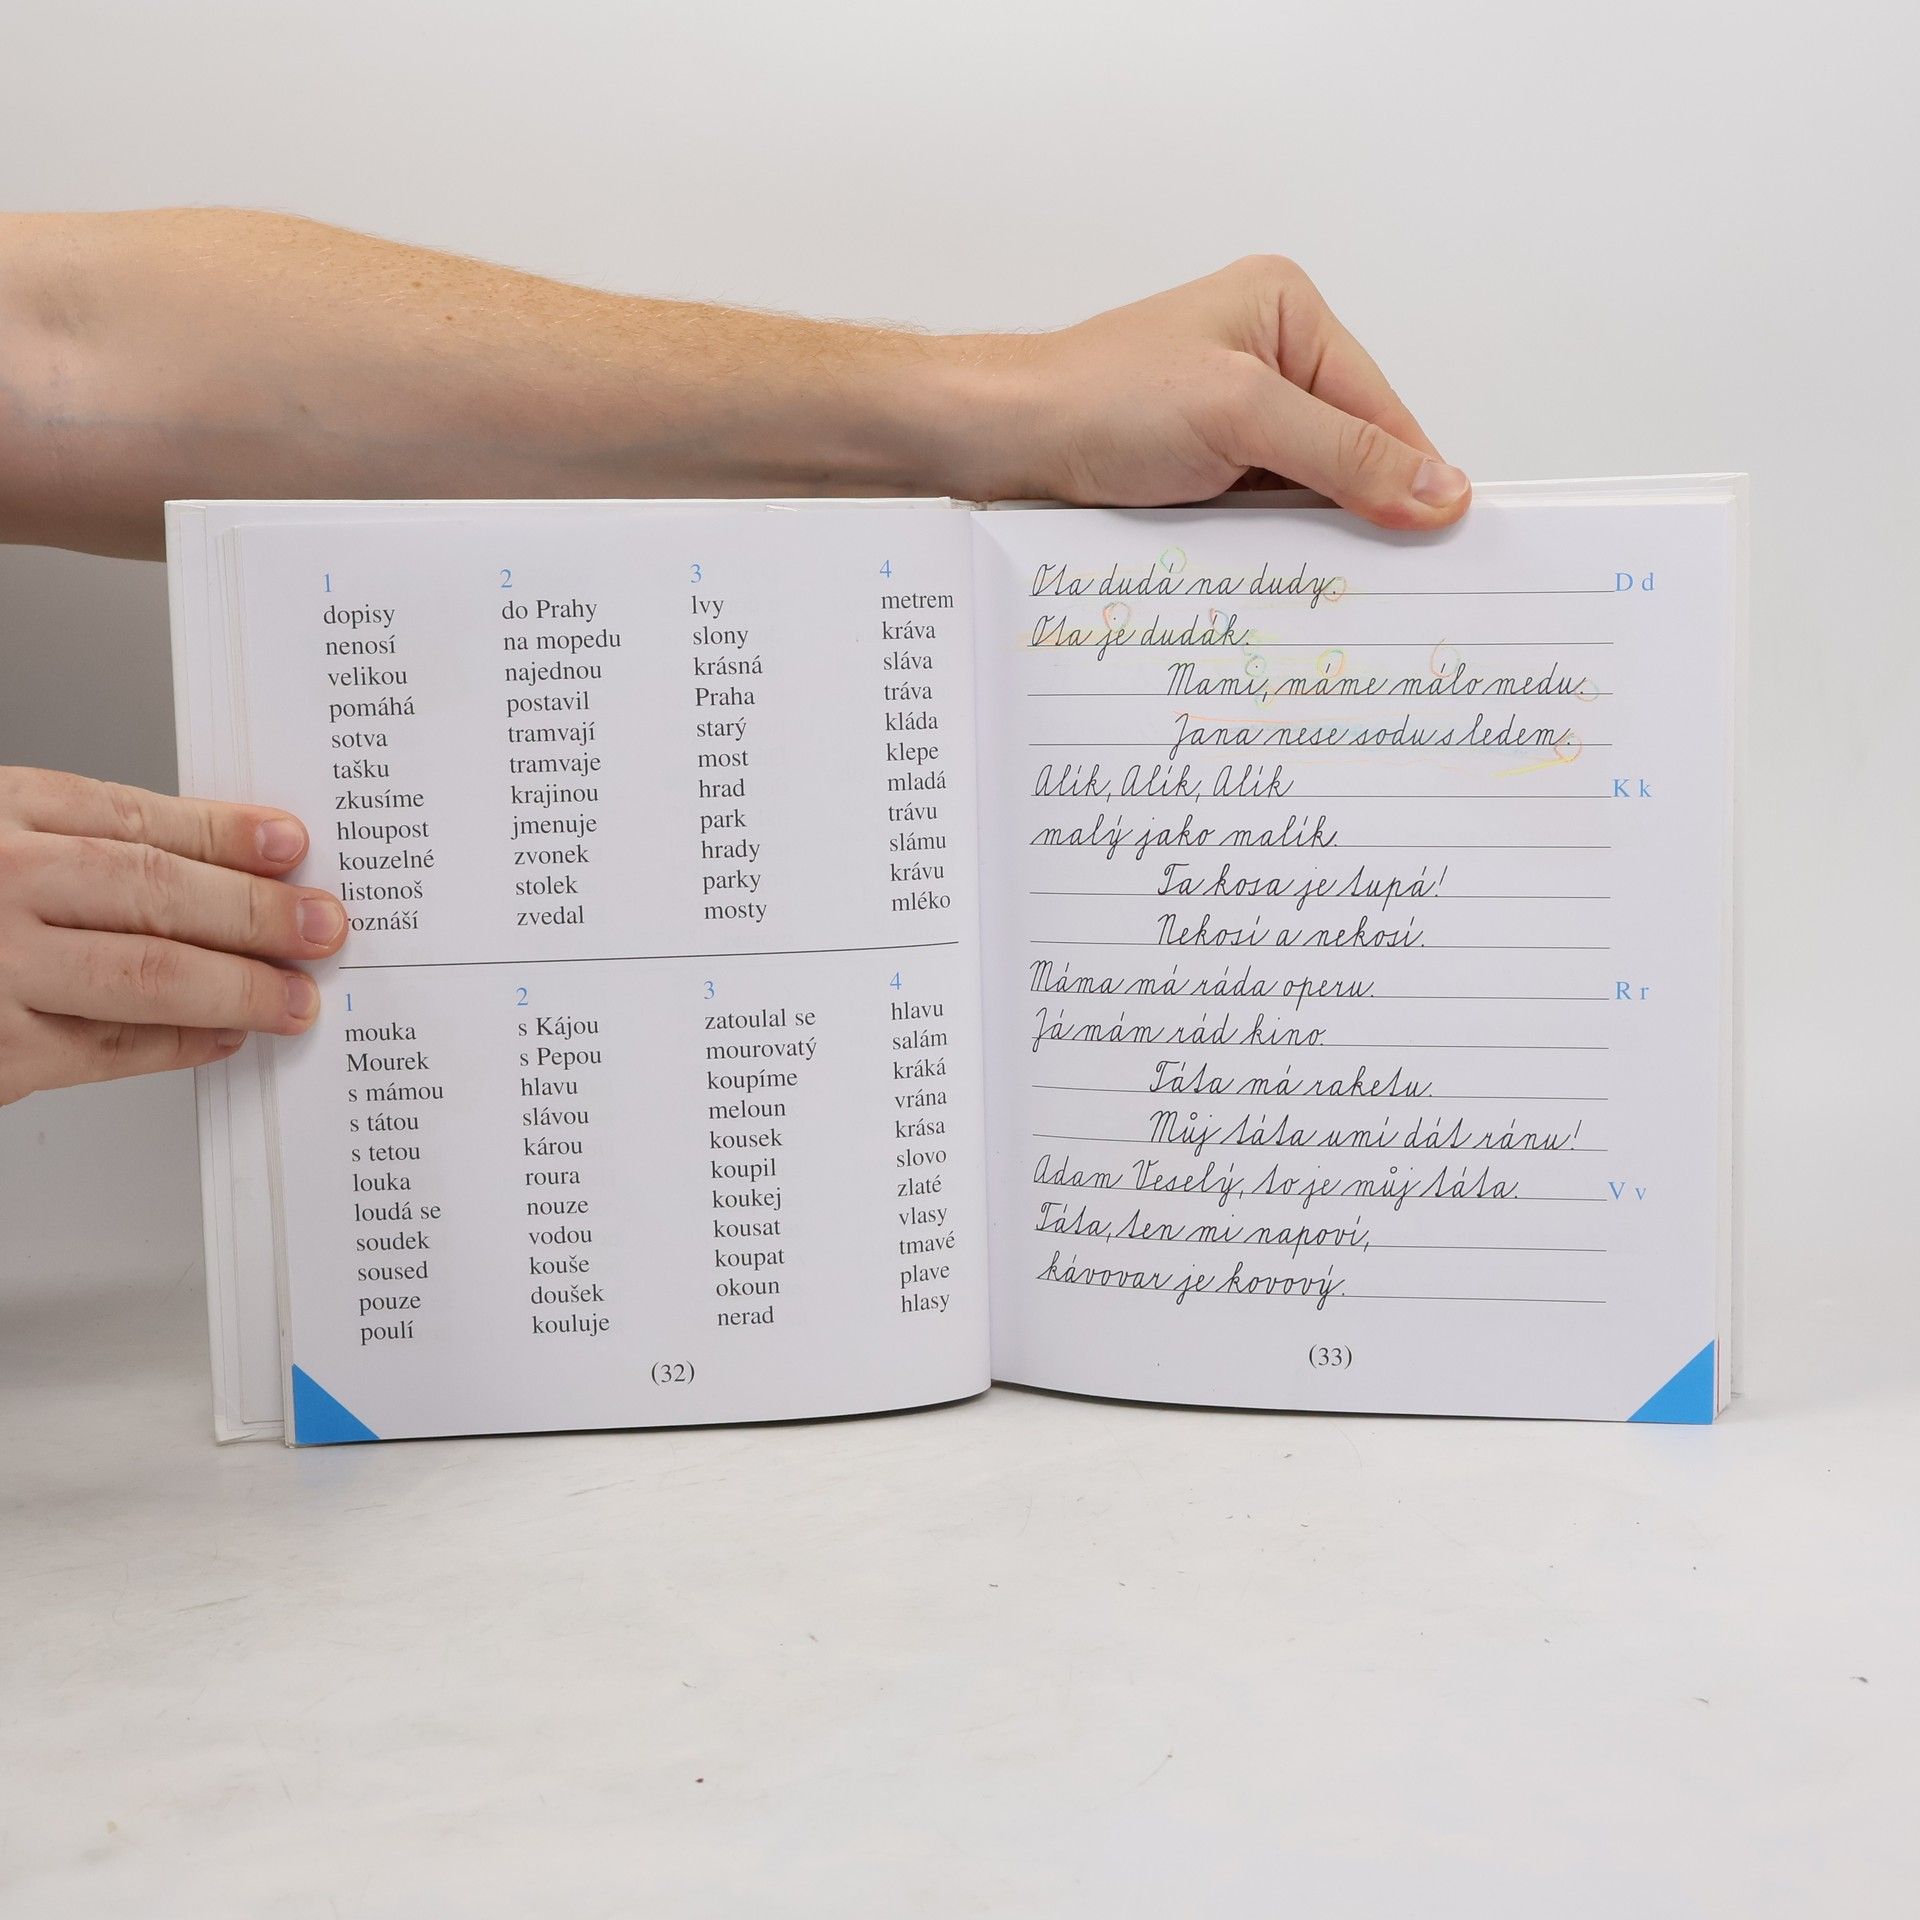 1 2 3 4
dopisy do Prahy lvy metrem
nenosí na mopedu slony kráva
velikou najednou krásná sláva
pomáhá postavil Praha tráva
sotva tramvají starý kláda
tašku tramvaje most klepe
zkusíme krajinou hrad mladá
hloupost jmenuje park trávu
kouzelné zvonek hrady slámu
listonoš stolek parky krávu
roznáší zvedal mosty mléko
1 2 3 4
mouka s Kájou zatoulal se hlavu
Mourek s Pepou mourovatý salám
s mámou hlavu koupíme kráká
s tátou slávou meloun vrána
s tetou károu kousek krása
louka roura koupil slovo
loudá se nouze koukej zlaté
soudek vodou kousat vlasy
soused kouše koupat tmavé
pouze doušek okoun plave
poulí kouluje nerad hlasy
(32)
Ota dudá na dudy. D d
Ota je dudák.
Mami, máme málo medu.
Jana nese sodu s ledem.
Alík, Alík, Alík K k
malý jako malík.
Ta kosa je tupá!
Nekosí a nekosí.
Máma má ráda operu. R r
Já mám rád kino.
Táta má raketu.
Můj táta umí dát ránu!
Adam Veselý, to je můj táta. V v
Táta, ten mi napoví,
kávovar je kovový.
(33)